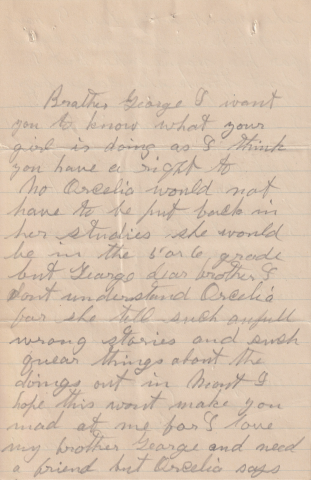 Brother George I want
you to know what your
girl is doing as I think
you have a right to
no Orcelia would not
have to be put back in
her studies she would
be in the 5 or 6 grade
but George dear brother I
dont understand Orcelia
for she tell such anfull
wrong stories and such
quear things about the
doings out in I
hope this wont make you
mad at me for I love
my brother George and need
a friend but Orcelia says